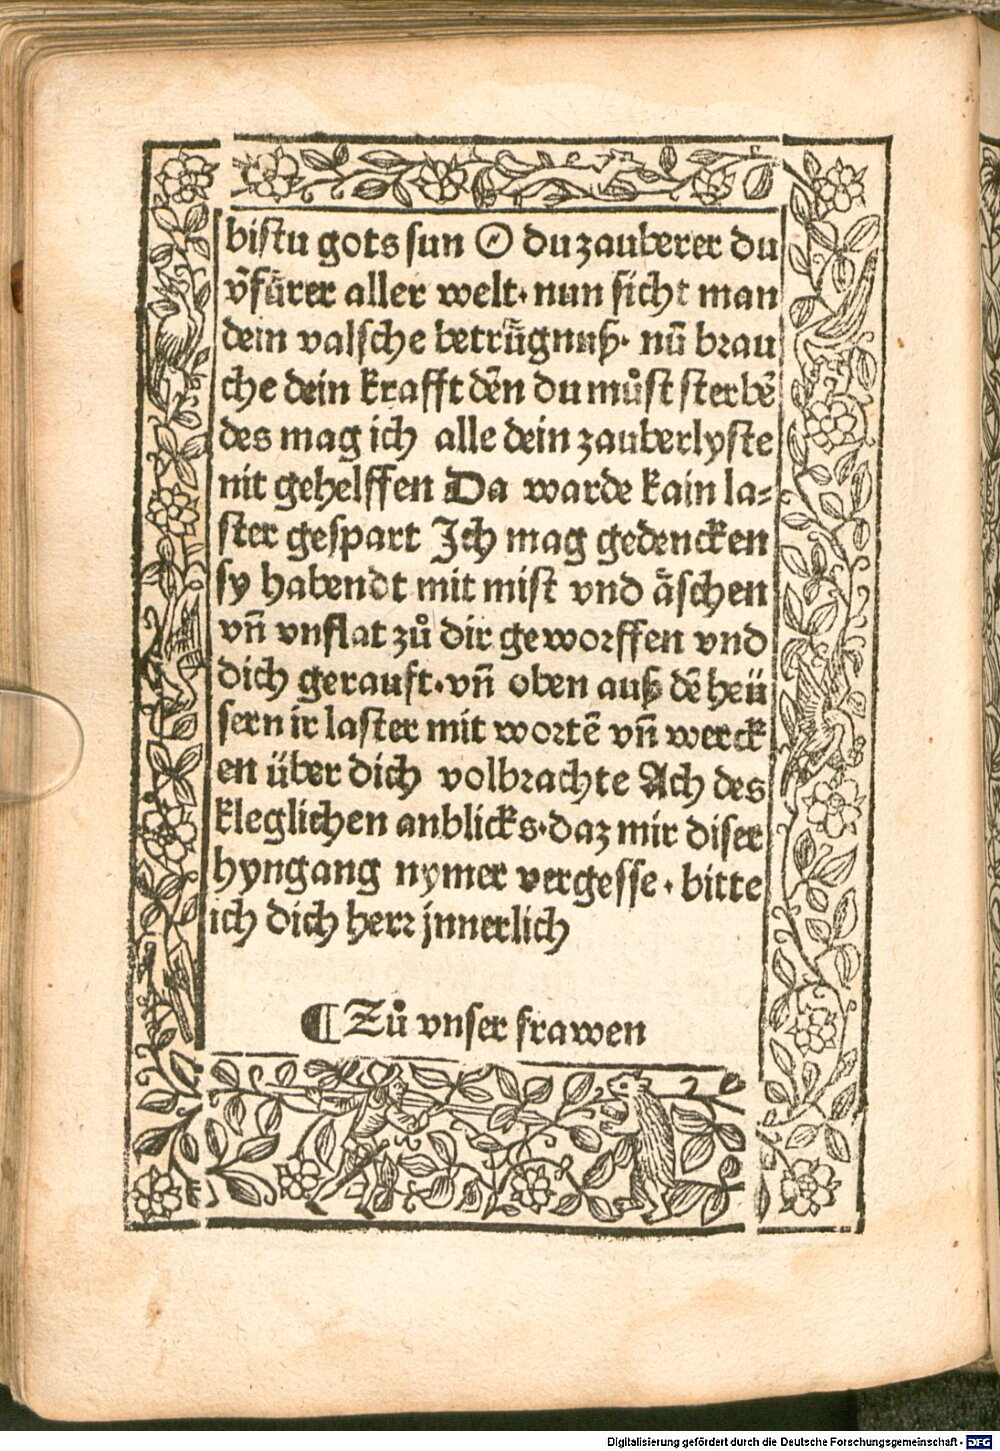 biſtu gots ſun O du zauberer du
v̄fu̇rer aller welt· nun ſicht man
dein valſche betrügnuß· nū brau
che dein krafft dēn du můſt ſterbē
des mag ich alle dein zauberlyſte
nit gehelffen Da warde kain la⸗
ſter geſpart Jch mag gedencken
ſy habendt mit miſt vnd äſchen
vn̄ vnflat zů dir geworffen vnd
dich gerauft·vn̄ oben auß dē heü
ſern ir laſter mit wortē vn̄ werck
en über dich volbꝛachte Ach des
kleglichen anblicks·daz mir diſer
hyngang nymer vergeſſe · bitte
ich dich herꝛ jnnerlich
¶ Zů vnſer frawen
Digitalisierung gefördert durch die Deutsche Forschungsgemeinschaft - DFG